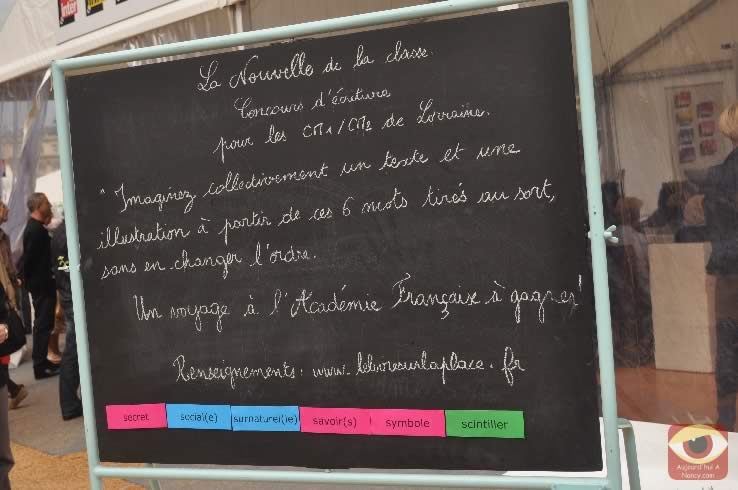 inter
La Nouvelle de la classe.
Concours d'écriture
pour les CM1/CM2 de Lorraine.
"Imaginez collectivement un texte et une
illustration à partir de ces 6 mots tirés au sort,
sans en changer l'ordre.
Un voyage à l'Académie Française à gagner!
Renseignements: www.lelivresurlaplace.fr
secret social(e) surnaturel(le) savoir(s) symbole scintiller
Aujourd'hui A
Nancy.com